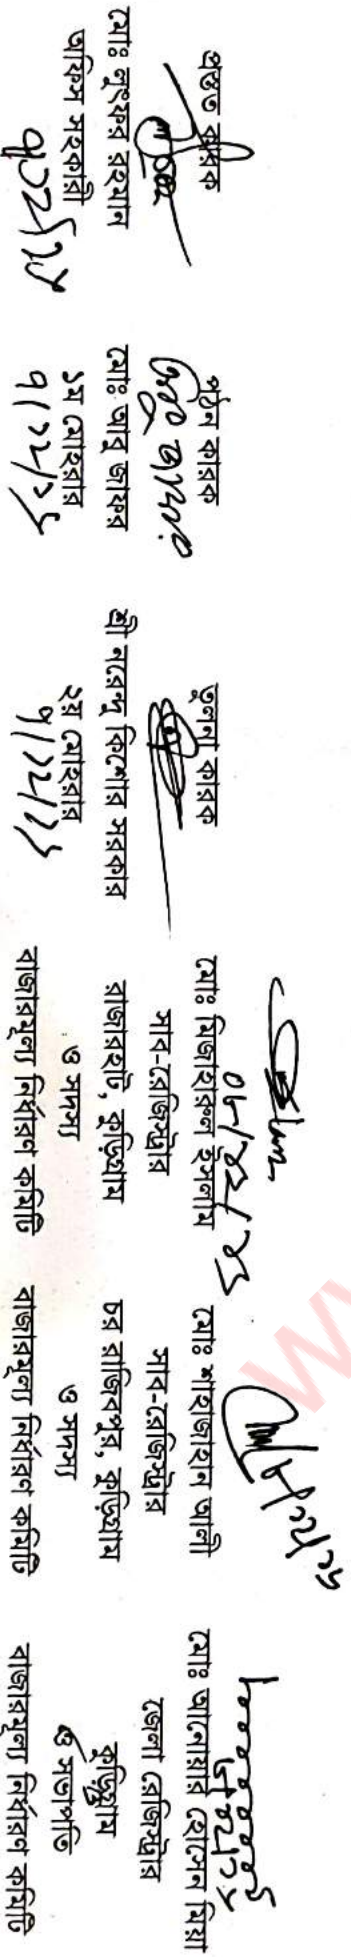 প্রস্তুত কারক
মোঃ লুৎফর রহমান
অফিস সহকারী
পঠন কারক
মোঃ আবু জাফর
১ম মোহরার
৭/১২/২১
তুলনা কারক
শ্রী নরেন্দু কিশোর সরকার
২য় মোহরার
৭/১২/২১
মোঃ মিজাহারুল ইসলাম
সাব-রেজিস্ট্রার
রাজারহাট, কুড়িগ্রাম
ও সদস্য
বাজারমূল্য নির্ধারণ কমিটি
মোঃ শাহজাহান আলী
সাব-রেজিস্ট্রার
চর রাজিবপুর, কুড়িগ্রাম
ও সদস্য
বাজারমূল্য নির্ধারণ কমিটি
মোঃ আনোয়ার হোসেন মিয়া
জেলা রেজিস্ট্রার
কুড়িগ্রাম
ও সভাপতি
বাজারমূল্য নির্ধারণ কমিটি